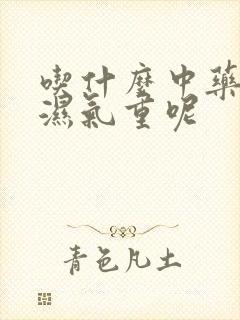 喫什麼中藥
濕氣重呢
青色凡土